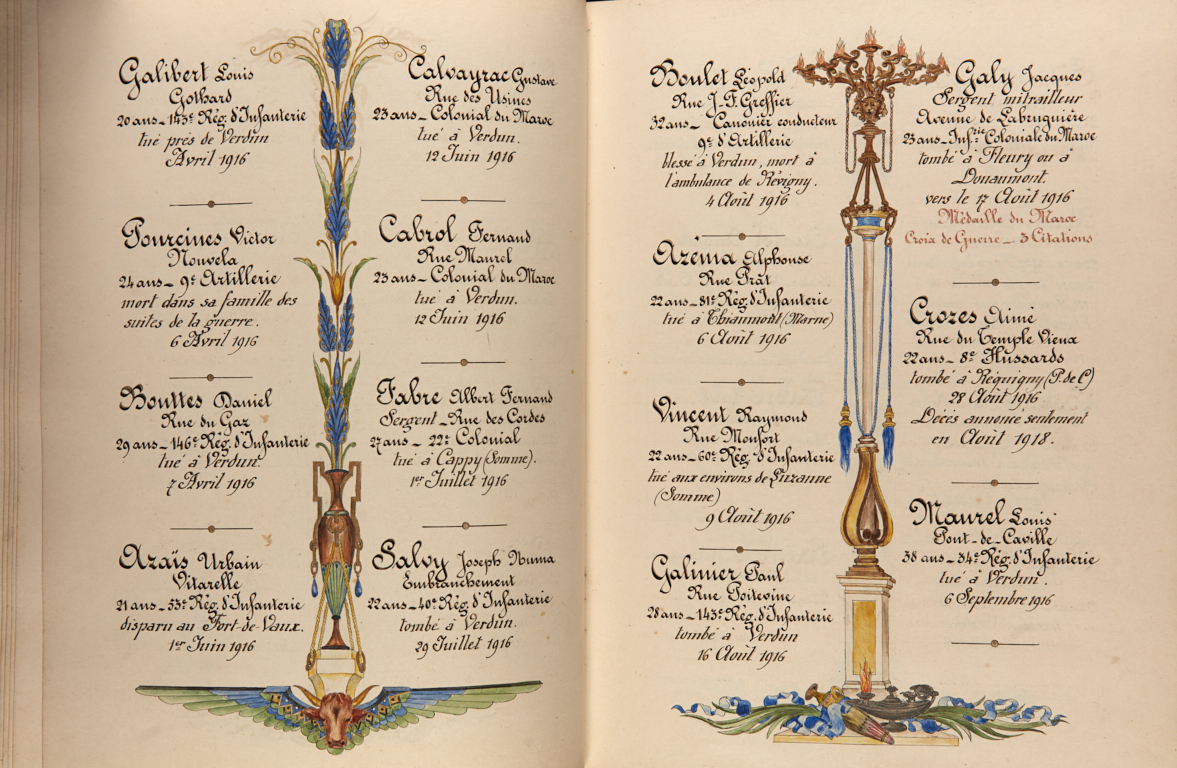 Galibert Louis
Gothard
20 ans _ 143e Rég. d'Infanterie
tué près de Verdun
Avril 1916
Pourcines Victor
Nouvela
24 ans _ 9e Artillerie
mort dans sa famille des
suites de la guerre.
6 Avril 1916
Bouttes Daniel
Rue du Gaz
29 ans _ 146e Rég. d'Infanterie
tué à Verdun.
7 Avril 1916
Azaïs Urbain
Vitarelle
21 ans _ 53e Rég. d'Infanterie
disparu au Fort-de-Vaux.
1er Juin 1916
Calvayrac Gustave
Rue des Usines
23 ans _ Colonial du Maroc
tué à Verdun.
12 Juin 1916
Cabrol Fernand
Rue Maurel
23 ans _ Colonial du Maroc
tué à Verdun.
12 Juin 1916
Fabre Albert Fernand
Sergent _ Rue des Cordes
27 ans _ 22e Colonial
tué à Cappy (Somme).
1er Juillet 1916
Salvy Joseph Numa
Embranchement
22 ans _ 40e Rég. d'Infanterie
tombé à Verdun.
29 Juillet 1916
Boulet Léopold
Rue J-F. Greffier
32 ans _ Canonier conducteur
9e d'Artillerie
blessé à Verdun, mort à
l'ambulance de Révigny.
4 Août 1916
Azéma Alphonse
Rue Prât
22 ans _ 81e Rég. d'Infanterie
tué à Thiaumont (Marne)
6 Août 1916
Vincent Raymond
Rue Monfort
22 ans _ 60e Rég. d'Infanterie
tué aux environs de Suzanne
(Somme)
9 Août 1916
Galinier Paul
Rue Poitevine
28 ans _ 143e Rég. d'Infanterie
tombé à Verdun
16 Août 1916
Galy Jacques
Sergent mitrailleur
Avenue de Labruguière
23 ans _ Inf.rie Coloniale du Maroc
tombé à Fleury ou à
Douaumont.
vers le 17 Août 1916
Médaille du Maroc
Croix de Guerre _ 3 Citations
Crozes Aimé
Rue du Temple Vieux
22 ans _ 8e Hussards
tombé à Réquigny (P. de C)
28 Août 1916
Décès annoncé seulement
en Août 1918.
Maurel Louis
Pont-de-Caville
38 ans _ 34e Rég. d'Infanterie
tué à Verdun.
6 Septembre 1916